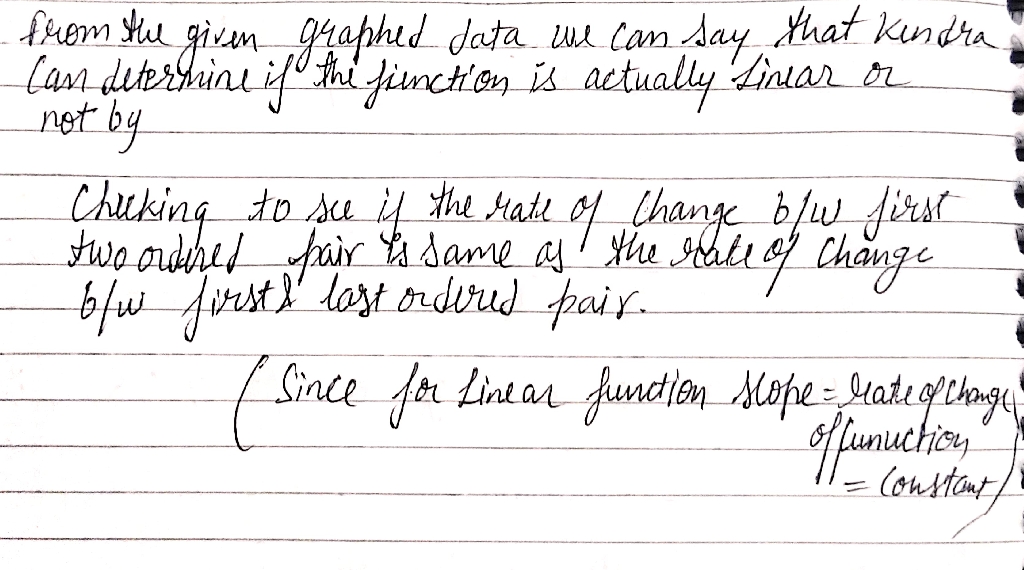 from the given graphed data we can say that Kendra
Can determine if the function is actually linear or
not by
Checking to see if the rate of Change b/w first
two ordered pair is same as the rate of Change
b/w first & last ordered pair.
( Since for linear function slope = rate of change
of funuction
= Constant )